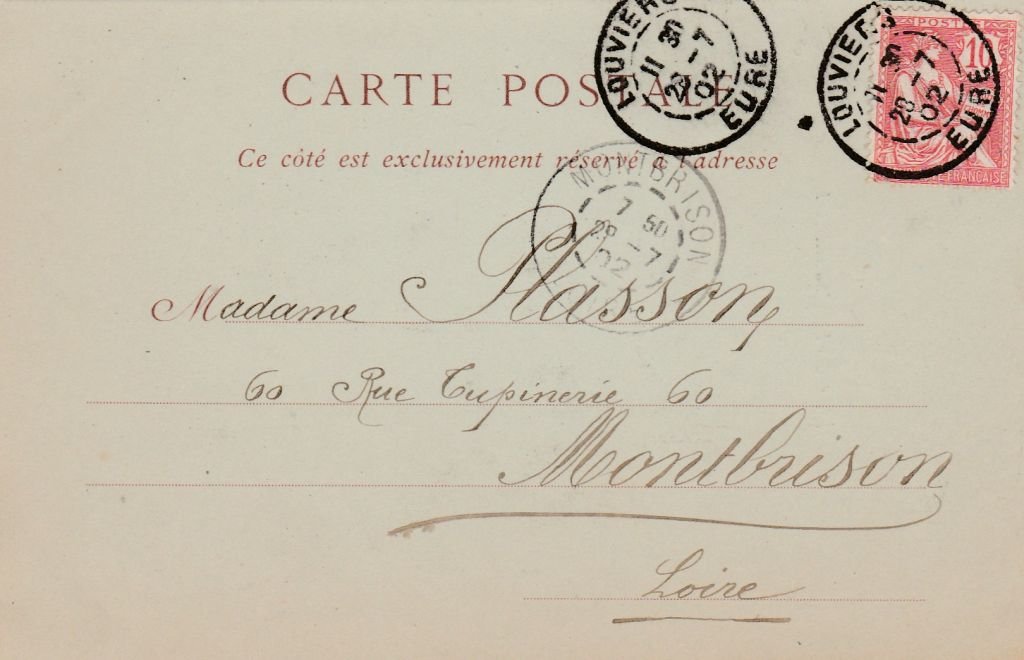 CARTE POSTALE
Ce côté est exclusivement réservé à l'adresse
LOUVIERS
11 30
28 -7
02
EURE
LOUVIERS
11 30
28 -7
02
EURE
POSTES
10
FRANÇAISE
MONTBRISON
7 50
29 -7
02
Madame Plasson,
60 Rue Tupinerie 60
Montbrison
Loire